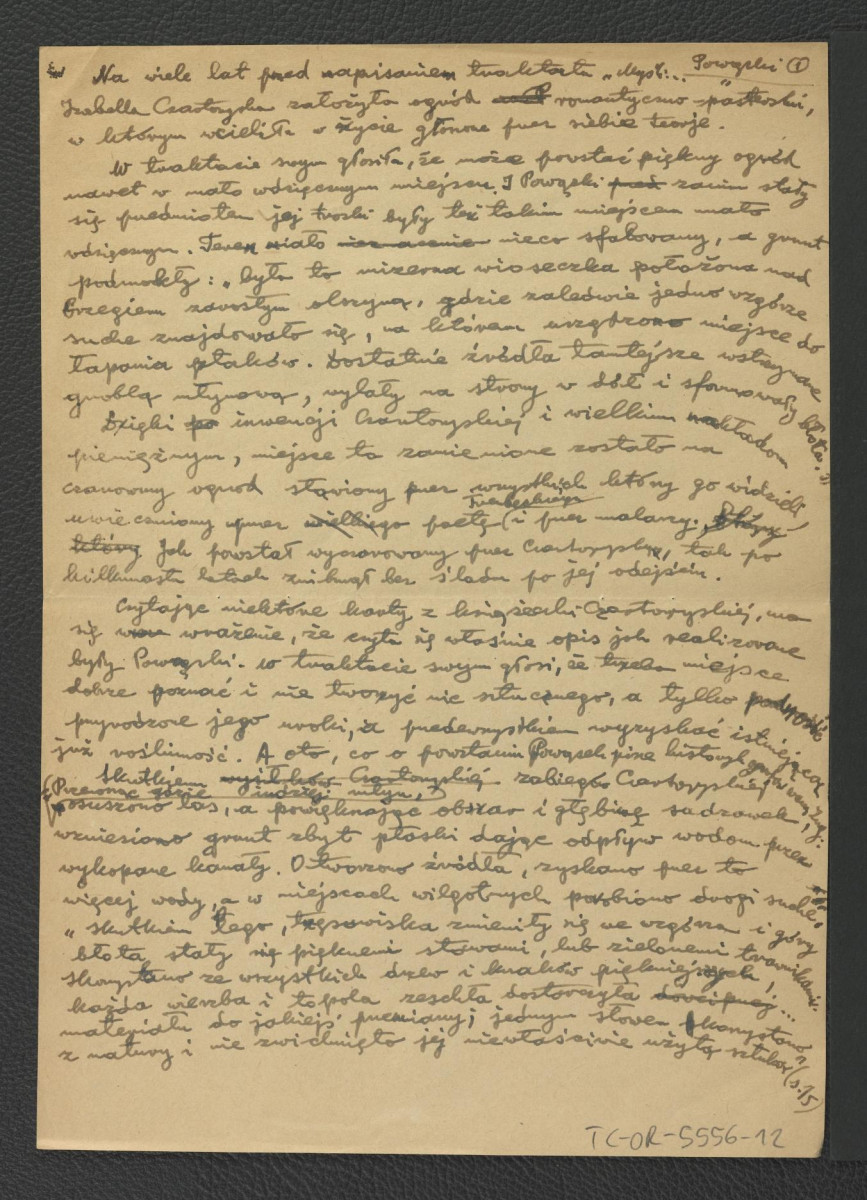 Powązki (1)
Na wiele lat przed napisaniem traktatu „Myśl...”
Izabella Czartoryska założyła ogród romantyczno-pasterski,
w którym wcieliła w życie głoszone przez siebie teorje.
W traktacie swym głosiła, że może powstać piękny ogród
nawet w mało wdzięcznym miejscu. I Powązki przed zanim stały
się przedmiotem jej troski były też takim miejscem mało
wdzięcznym. Teren miało nieznacznie nieco sfalowany, a grunt
podmokły: „była to mizerna wioseczka położona nad
brzegiem zarosłym olszyną, gdzie zaledwie jedno wzgórze
suche znajdowało się, na którem urządzono miejsce do
łapania ptaków. Dostatnie źródła tamtejsze wstrzymane
groblą młynową, wylały na strony w dół i sformowały błota.
Dzięki po inwencji Czartoryskiej i wielkim nakładom
pieniężnym, miejsce to zamienione zostało na
czarowny ogród sławiony przez wszystkich którzy go widzieli,
Trembeckiego
uwieczniony przez wielkiego poetę i przez malarzy.
który Jak powstał wyczarowany przez Czartoryską, tak po
kilkunastu latach zniknął bez śladu po jej odejściu.
Czytając niektóre karty z książeczki Czartoryskiej, ma
się wrażenie, że czyta się właśnie opis jak realizowane
były Powązki. W traktacie swym głosi, że trzeba miejsce
dobrze poznać i nie tworzyć nic sztucznego, a tylko podnosić
przyrodzone jego uroki, a przedewszystkiem wyzyskać istniejącą
już roślinność. A oto, co o powstaniu Powązek pisze historyk
Skutkiem wysiłków Czartoryskiej zabiegów Czartoryskiej
(Przenosząc gdzie indziej młyn,)
posuszono las, a powiększając obszar i głębinę sadzawek,
wzniesiono grunt zbyt płaski dając odpływ wodom przez
wykopane kanały. Otworzono źródła, zyskano przez to
więcej wody, a w miejscach wilgotnych porobiono drogi suche
„skutkiem tego, trzęsawiska zmieniły się we wzgórza i góry
błota stały się pięknemi stawami, lub zielonemi trawnikami.
Skorzystano ze wszystkich drzew i krzaków piękniejszych,
każda wierzba i topola zeschła dostarczyła ...
materiału do jakiejś przemiany; jednym słowem skorzystano
z natury i nie zwichnięto jej niewłaściwie użytą sztuką” (s. 15)
TC-OR-5556-12